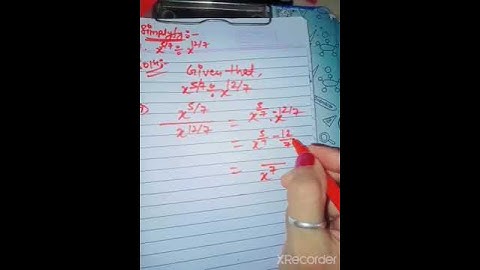 Simplify:-
x^5/7 ÷ x^12/7
Soln:-
Given that,
x^5/7 ÷ x^12/7
x^5/7 / x^12/7 = x^5/7 ÷ x^12/7
= x^5/7 - 12/7
= / x^7
XRecorder